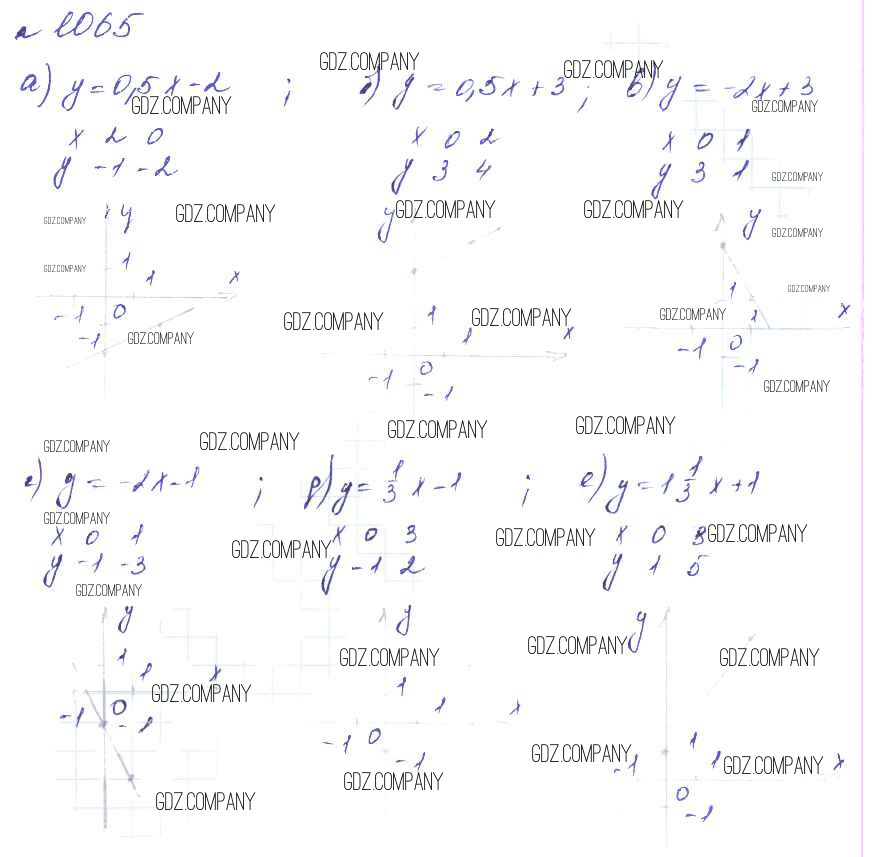 № 1065
а) y = 0,5x - 2 ; б) y = 0,5x + 3 ; в) y = -2x + 3
GDZ.COMPANY GDZ.COMPANY GDZ.COMPANY GDZ.COMPANY
x 2 0 x 0 2 x 0 1
y -1 -2 y 3 4 y 3 1 GDZ.COMPANY
GDZ.COMPANY y GDZ.COMPANY y GDZ.COMPANY GDZ.COMPANY y GDZ.COMPANY
GDZ.COMPANY 1 1 x 1 GDZ.COMPANY
-1 0 GDZ.COMPANY 1 GDZ.COMPANY GDZ.COMPANY 1 x
-1 GDZ.COMPANY 1 x -1 0
-1 0 -1
-1 GDZ.COMPANY
GDZ.COMPANY GDZ.COMPANY GDZ.COMPANY GDZ.COMPANY
г) y = -2x - 1 ; д) y = 1/3 x - 1 ; е) y = 1 1/3 x + 1
GDZ.COMPANY
x 0 1 GDZ.COMPANY x 0 3 GDZ.COMPANY x 0 3 GDZ.COMPANY
y -1 -3 y -1 2 y 1 5
GDZ.COMPANY
y y y
1 GDZ.COMPANY GDZ.COMPANY GDZ.COMPANY
1 x 1
GDZ.COMPANY 1 x
-1 0 -1 -1 0 1
GDZ.COMPANY -1 GDZ.COMPANY -1 1 GDZ.COMPANY x
GDZ.COMPANY 0 -1